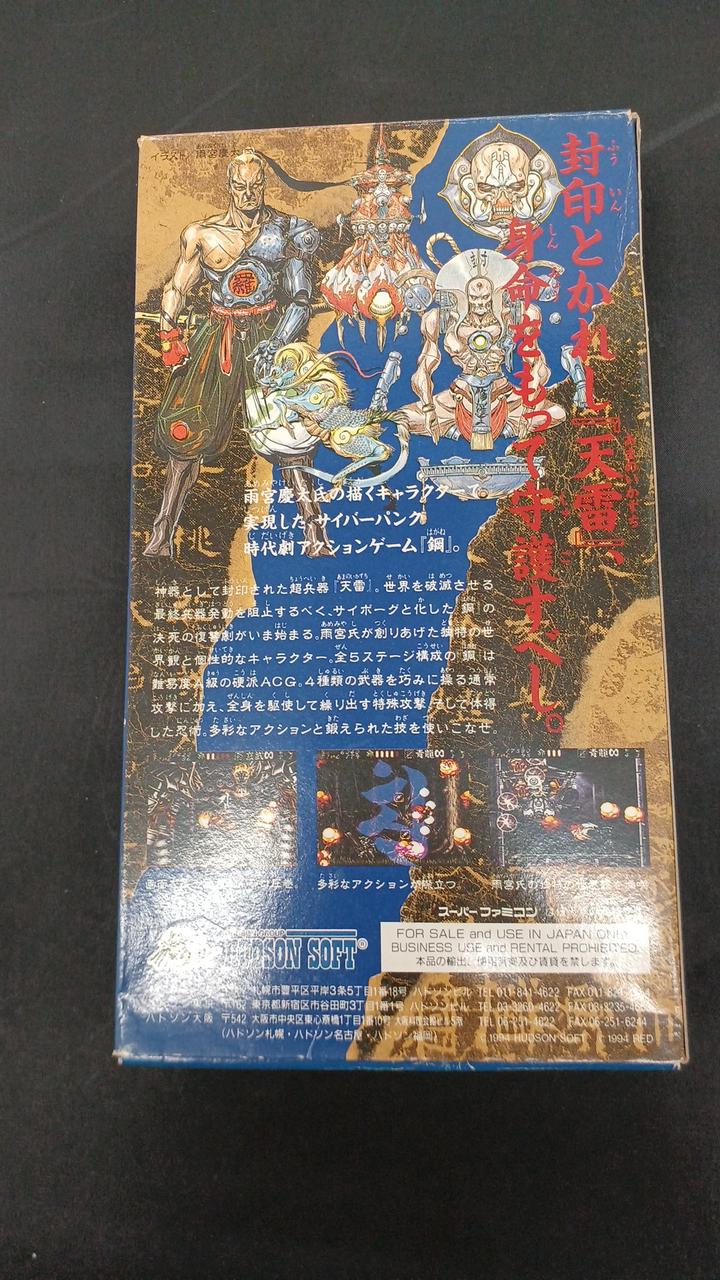 封印とかれし『天雷』、
身命をもって守護すべし。
イラスト 雨宮慶太
雨宮慶太氏の描くキャラクターで
実現した、サイバーパンク
時代劇アクションゲーム『鋼』。
神器として封印された超兵器『天雷』。世界を破滅させる
最終兵器発動を阻止するべく、サイボーグと化した『鋼』の
決死の復讐劇がいま始まる。雨宮氏が創りあげた独特の世
界観と個性的なキャラクター。全5ステージ構成の『鋼』は
難易度A級の硬派ACG。4種類の武器を巧みに操る通常
攻撃に加え、全身を駆使して繰り出す特殊攻撃、そして体得
した忍術。多彩なアクションと鍛えられた技を使いこなせ。
多彩なアクションが際立つ。
雨宮氏の
スーパーファミコン
HUDSON SOFT®
FOR SALE and USE IN JAPAN ONLY
BUSINESS USE and RENTAL PROHIBITED.
本品の輸出、使用営業及び賃貸を禁じます。
札幌市豊平区平岸3条5丁目1番18号 ハドソンビル TEL 011-841-4622 FAX 011-
〒162 東京都新宿区市谷田町3丁目1番1号 ハドソンビル TEL 03-3260-4622 FAX 03-3235-
ハドソン大阪 〒542 大阪市中央区東心斎橋1丁目1番10号 大阪料理会館ビル5階 TEL 06-251-4622 FAX 06-251-6244
(ハドソン札幌・ハドソン名古屋・ハドソン福岡)
©1994 HUDSON SOFT ©1994 RED